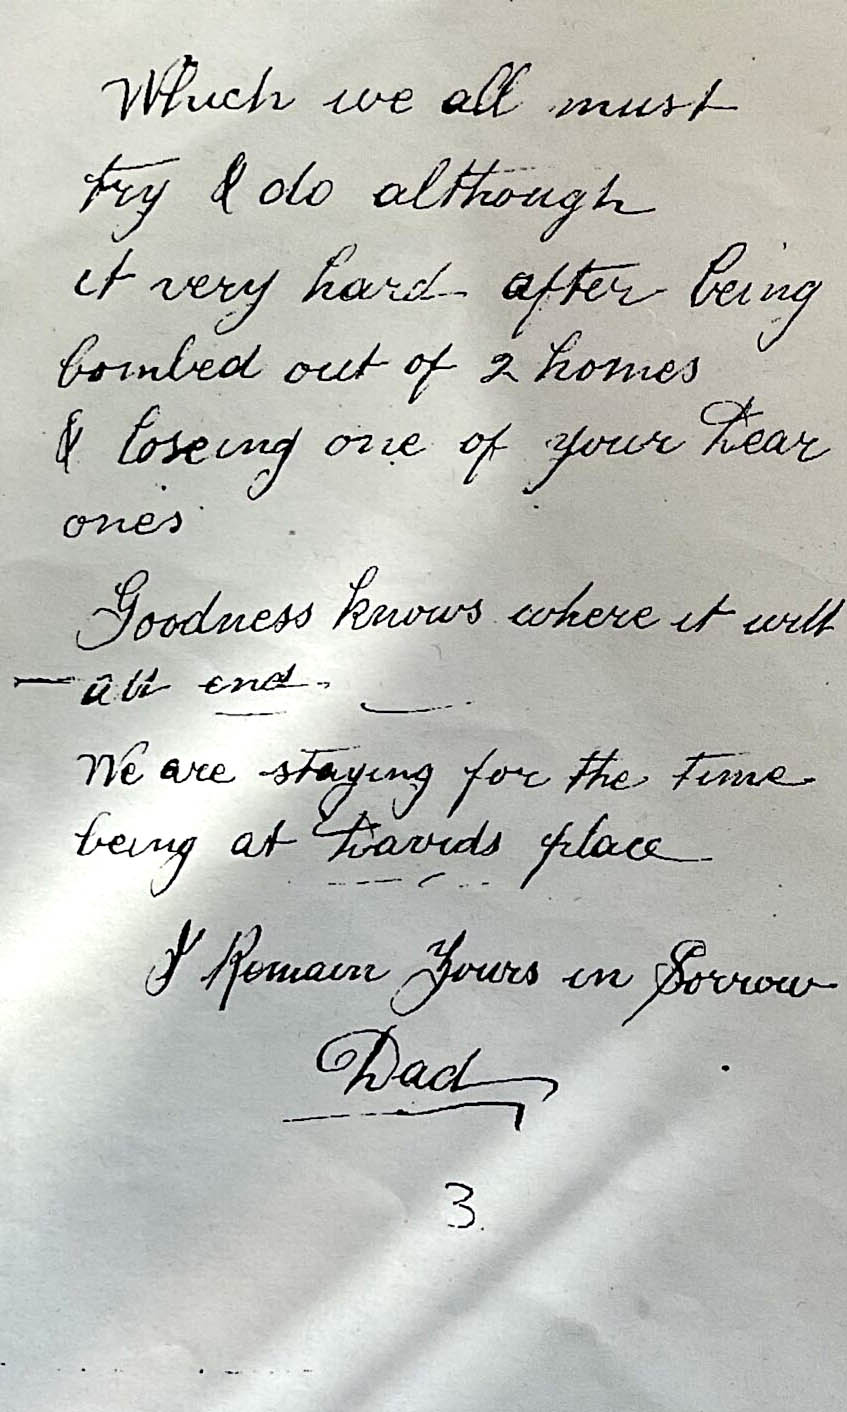 Which we all must
try & do although
it very hard after being
bombed out of 2 homes
& loseing one of your Dear
ones
Goodness knows where it will
all end.
We are staying for the time
being at Davids place
I Remain Yours in Sorrow
Dad
3